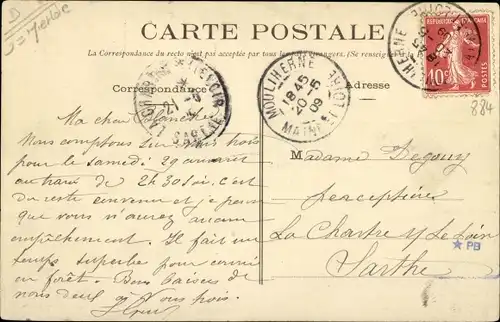 CARTE POSTALE
La Correspondance du recto n'est pas acceptée par tous les pays étrangers. (Se renseigner
Correspondance
Adresse
MOULIHERNE
18 45
20 -5
09
MAINE-ET-LOIRE
LA CHARTRE
SARTHE
10c
884
Ma chère Blanche
Nous comptons sur vous trois
pour le samedi 29 courant
au train de 2h30 soir, c'est
du reste convenu et je pense
que vous n'aurez aucun
empêchement. Il fait un
temps superbe pour courir
en forêt. Bons baisers de
nous deux à vous trois.
Madame Degouy
perceptière
La Chartre s/ Le Loir
Sarthe
PB